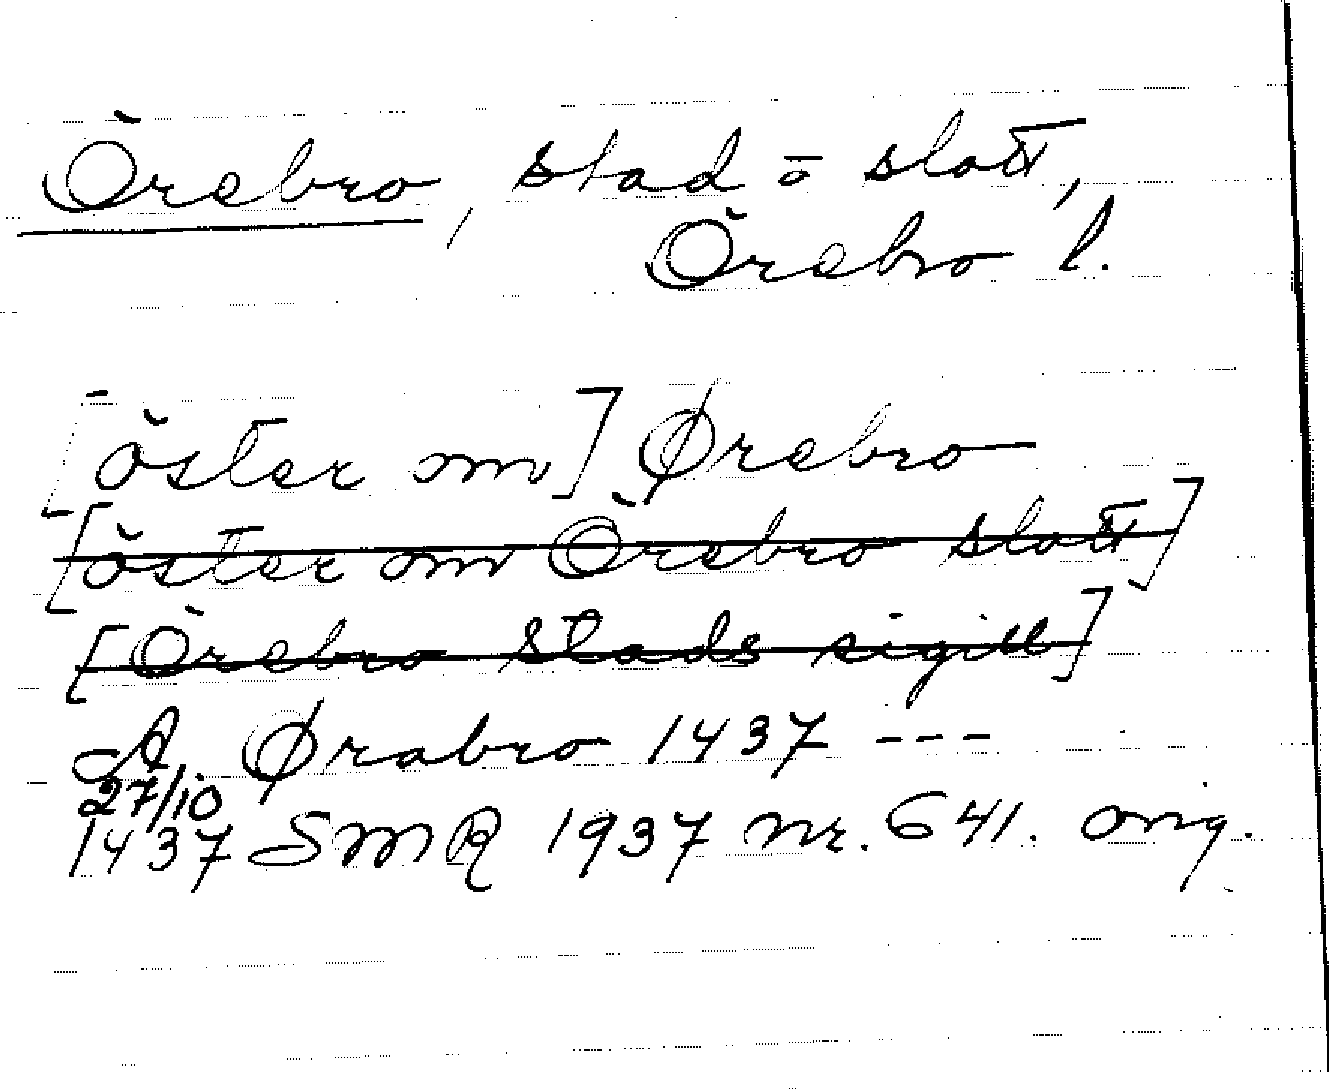 Örebro, stad o slott,
Örebro l.
[öster om] Ørebro
[öster om Örebro slott]
[Örebro stads sigill]
A Ørabro 1437 ---
27/10
1437 SMR 1937 nr. 641. orig.